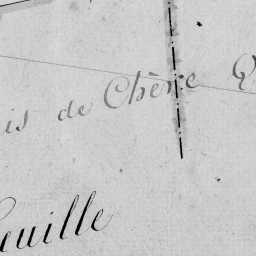 is de Chêne Q
euille